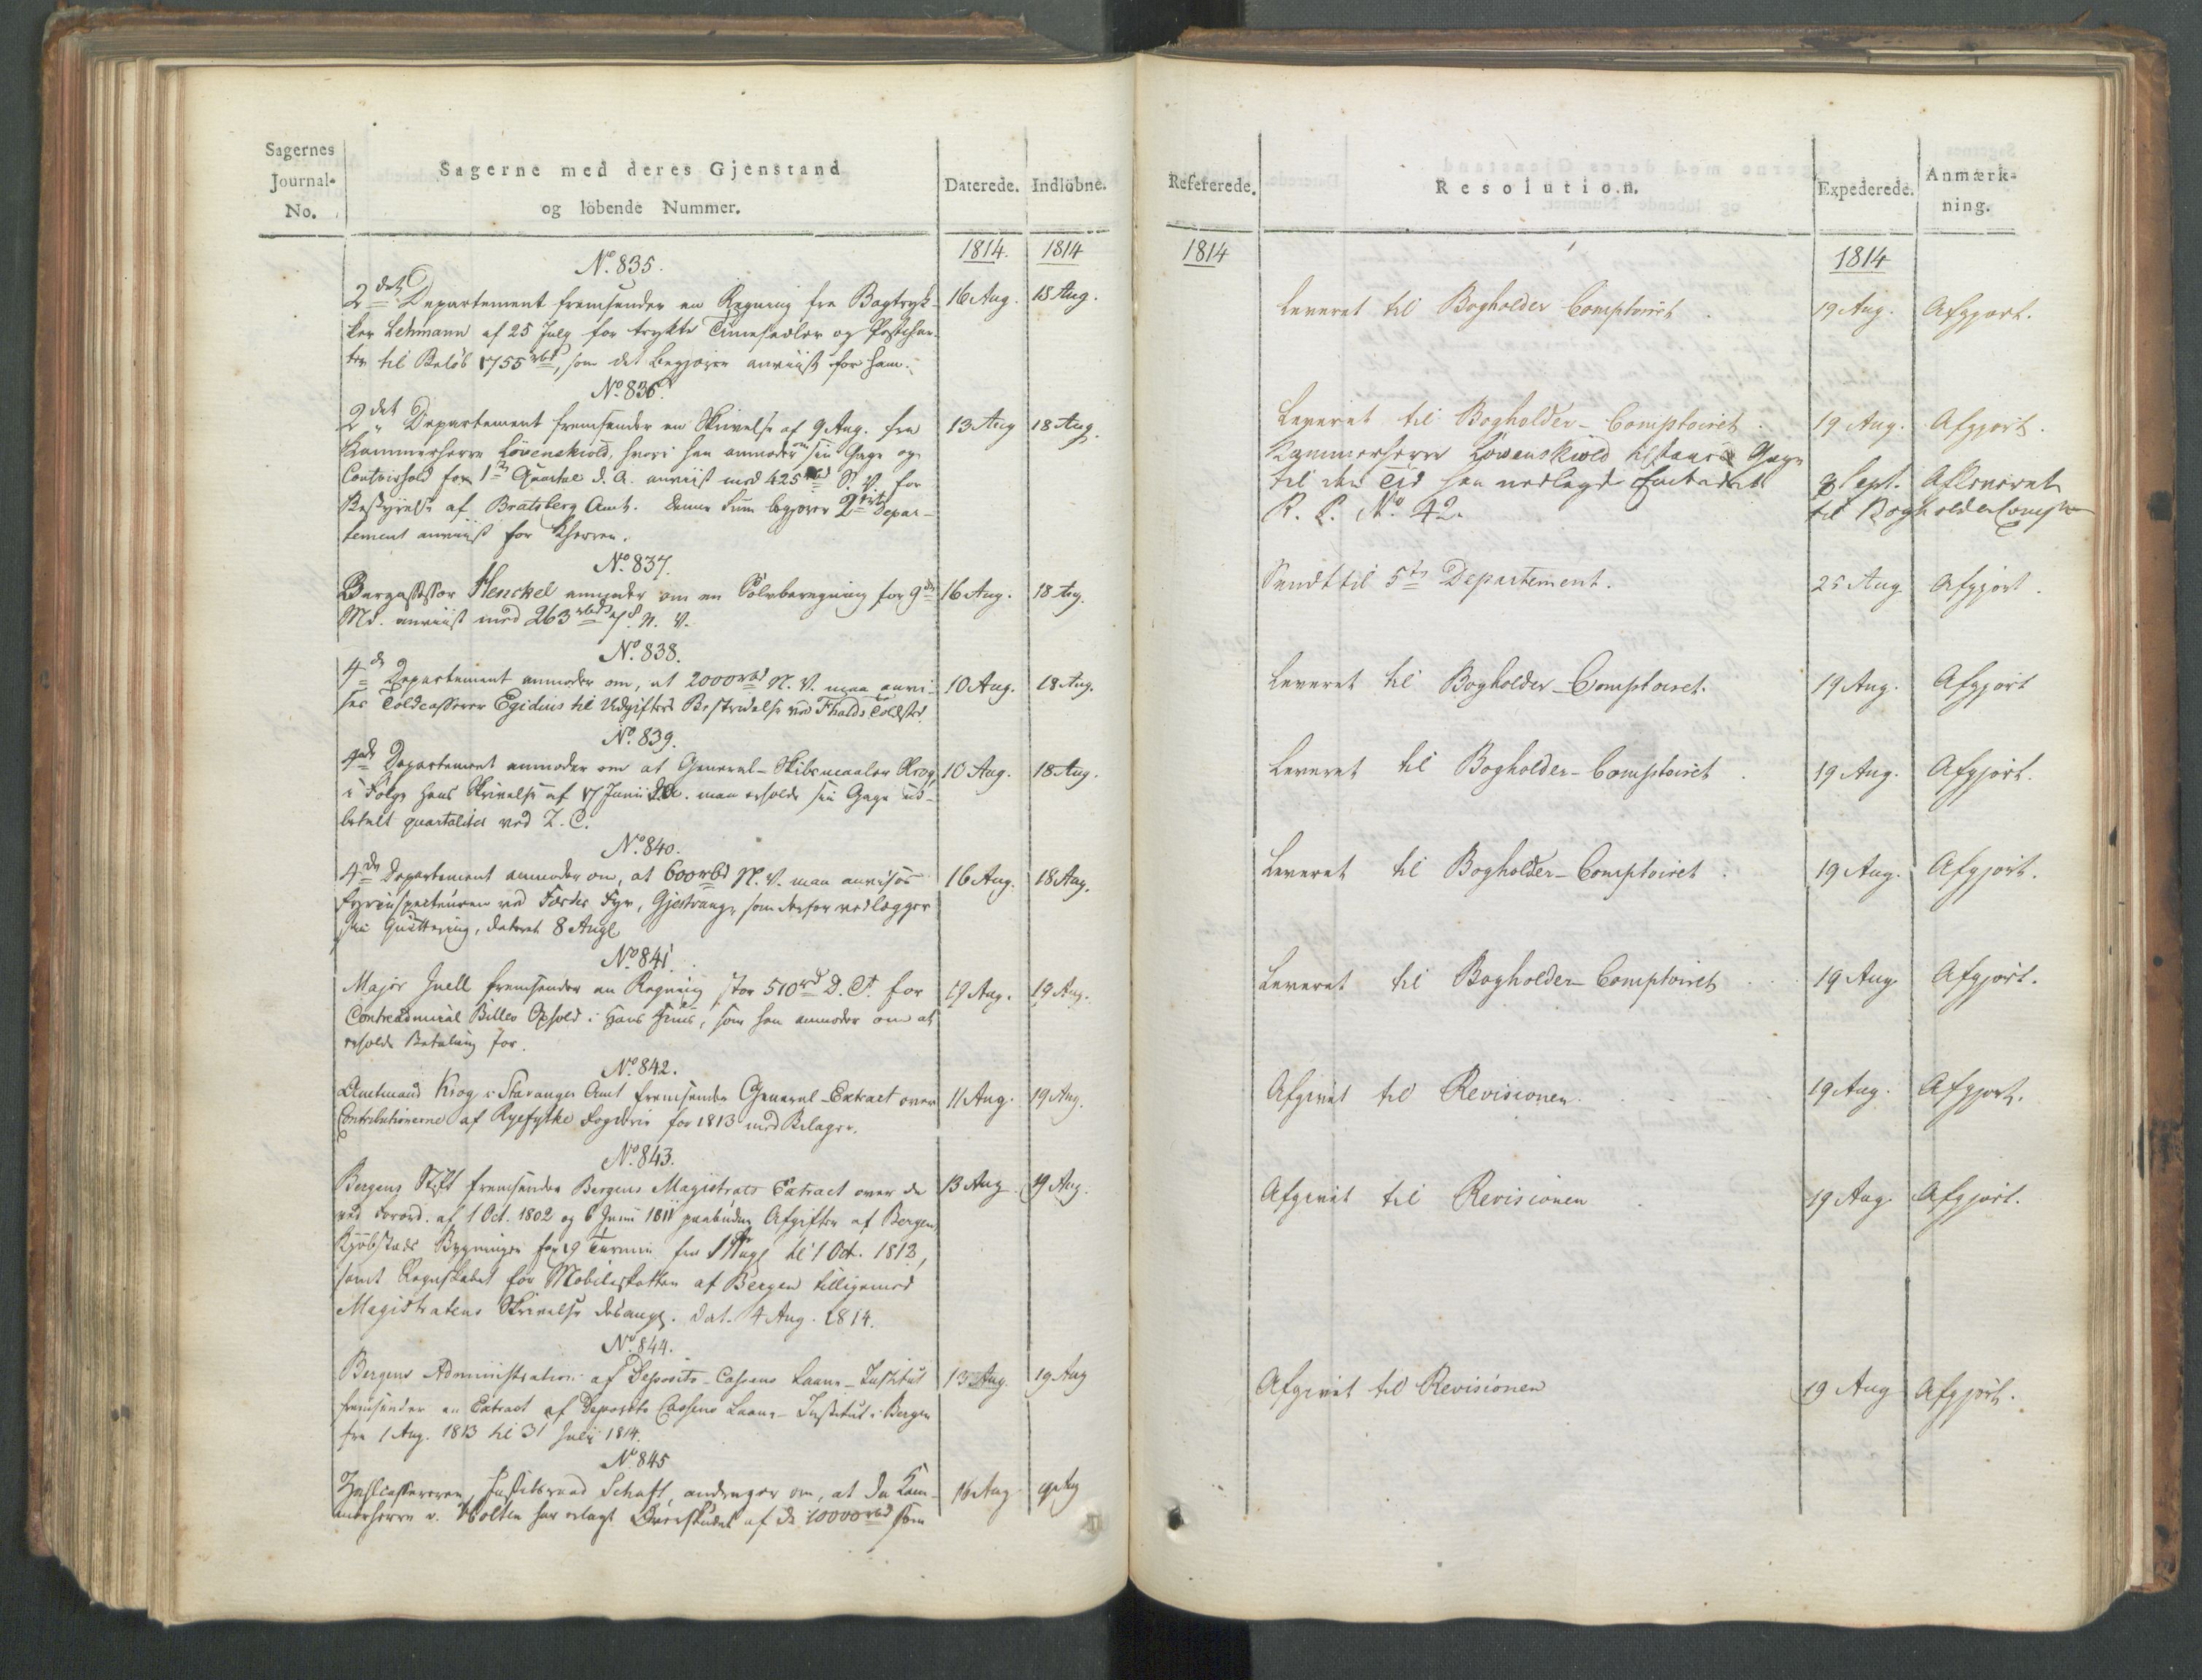 Sagernes
Journal-
No.
Sagerne med deres Gjenstand
og löbende Nummer.
Daterede.
Indlöbne.
1814.
1814
No. 835.
2det Departement fremsender en Regning fra Bogtryk-
ker Lehmann af 25 July for trykte Timesedler og Postchar-
ter til Beløb 1755 rbd, som det begjærer anviist for ham.
16 Aug.
18 Aug.
No. 836.
2det Departement fremsender en Skrivelse af 9 Aug. fra
Kammerherre Lövenskiold, hvori han anmoder om sin Gage og
Contoirhold for 1ste Quartal d. A. anviist med 425 rbd S. V. for
Bestyrelse af Bratsberg Amt. Denne Sum begjærer 2det Depar-
tement anviist for Kherren.
13 Aug
18 Aug.
No. 837.
Bergassessor Henckel anmoder om en Sølvberegning for 9de
Md. anviist med 263 rbd 7 s. N. V.
16 Aug.
18 Aug.
No. 838.
4de Departement anmoder om, at 2000 rbd N. V. maa anvi-
ses Toldcasserer Egidius til Udgifters Bestridelse ved Fhalds Toldsted.
10 Aug.
18 Aug.
No. 839.
4de Departement anmoder om at General-Skibsmaaler Krog,
i Følge hans Skrivelse af 17 Junii d. A. maa erholde sin Gage ud-
betalt quartaliter ved Z. C.
10 Aug.
18 Aug.
No. 840.
4de Departement anmoder om, at 600 rbd N. V. maa anvises
Fyrinspecteuren ved Færder Fyr, Gjestrang, som derfor vedlægger
sin Qvittering, dateret 8 Aug.
16 Aug.
18 Aug.
No. 841.
Major Juell fremsender en Regning stor 510 rd D. C. for
Contreadmiral Billes Ophold i hans Huus, som han anmoder om at
erholde Betaling for.
19 Aug.
19 Aug.
No. 842.
Amtmand Krog i Stavanger Amt fremsender General-Extract over
Contributionerne af Ryefylke Fogderie for 1813 med Bilager.
11 Aug.
19 Aug.
No. 843.
Bergens Stift fremsender Bergens Magistrats Extract over de
ved Forord. af 1 Oct. 1802 og 6 Junii 1811 paabudne Afgifter af Bergens
Kjöbstads Bygninger for 19 Termin fra 1 Aug. til 1 Oct. 1813,
samt Regnskabet for Mobilieskatten af Bergen tilligemed
Magistratens Skrivelse desang. dat. 4 Aug. 1814.
13 Aug.
19 Aug.
No. 844.
Bergens Administration af Deposito-Cassens Laane-Institut
fremsender en Extract af Deposito Cassens Laane-Institut i Bergen
fra 1 Aug. 1813 til 31 July 1814.
13 Aug.
19 Aug
No. 845
Zahlcassereren, Justitsraad Schaft, andrager om, at da Kam-
merherre v. Holten har erlagt Overskudet af de 10000 rbd som
16 Aug
19 Aug
Refererede.
Resolution.
Expederede.
Anmærk-
ning.
1814
1814
Leveret til Bogholder Comptoiret.
19 Aug.
Afgjort.
Leveret til Bogholder-Comptoiret.
19 Aug.
Afgjort.
Kammerherre Löwenskiold tilstaaes Gage
til den Tid han nedlagde Embedet
R. P. No. 42.
8 Sept. Afleveret
til Bogholder Compt
Sendt til 5te Departement.
25 Aug
Afgjort.
Leveret til Bogholder-Comptoiret.
19 Aug.
Afgjort
Leveret til Bogholder-Comptoiret.
19 Aug.
Afgjort.
Leveret til Bogholder-Comptoiret.
19 Aug.
Afgjort.
Leveret til Bogholder-Comptoiret
19 Aug.
Afgjort.
Afgivet til Revisionen.
19 Aug.
Afgjort.
Afgivet til Revisionen.
19 Aug.
Afgjort.
Afgivet til Revisionen
19 Aug
Afgjort.